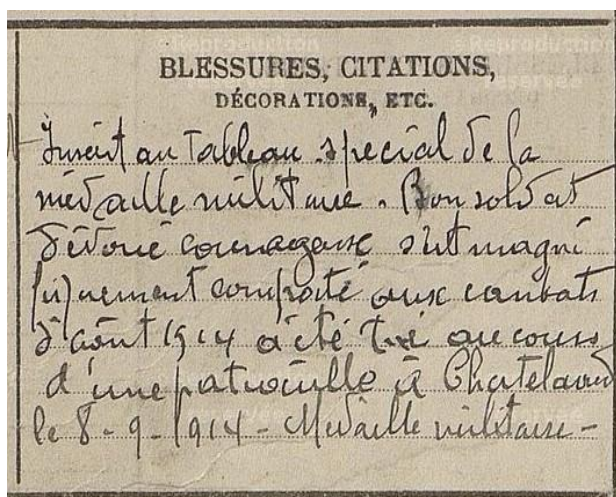 BLESSURES, CITATIONS,
DÉCORATIONS, ETC.
Inscrit au Tableau special de la
médaille militaire. Bon soldat
dévoué courageux s'est magni
fiquement comporté aux combats
d'août 1914 a été tué au cours
d'une patrouille à
le 8-9-1914 - Médaille militaire -